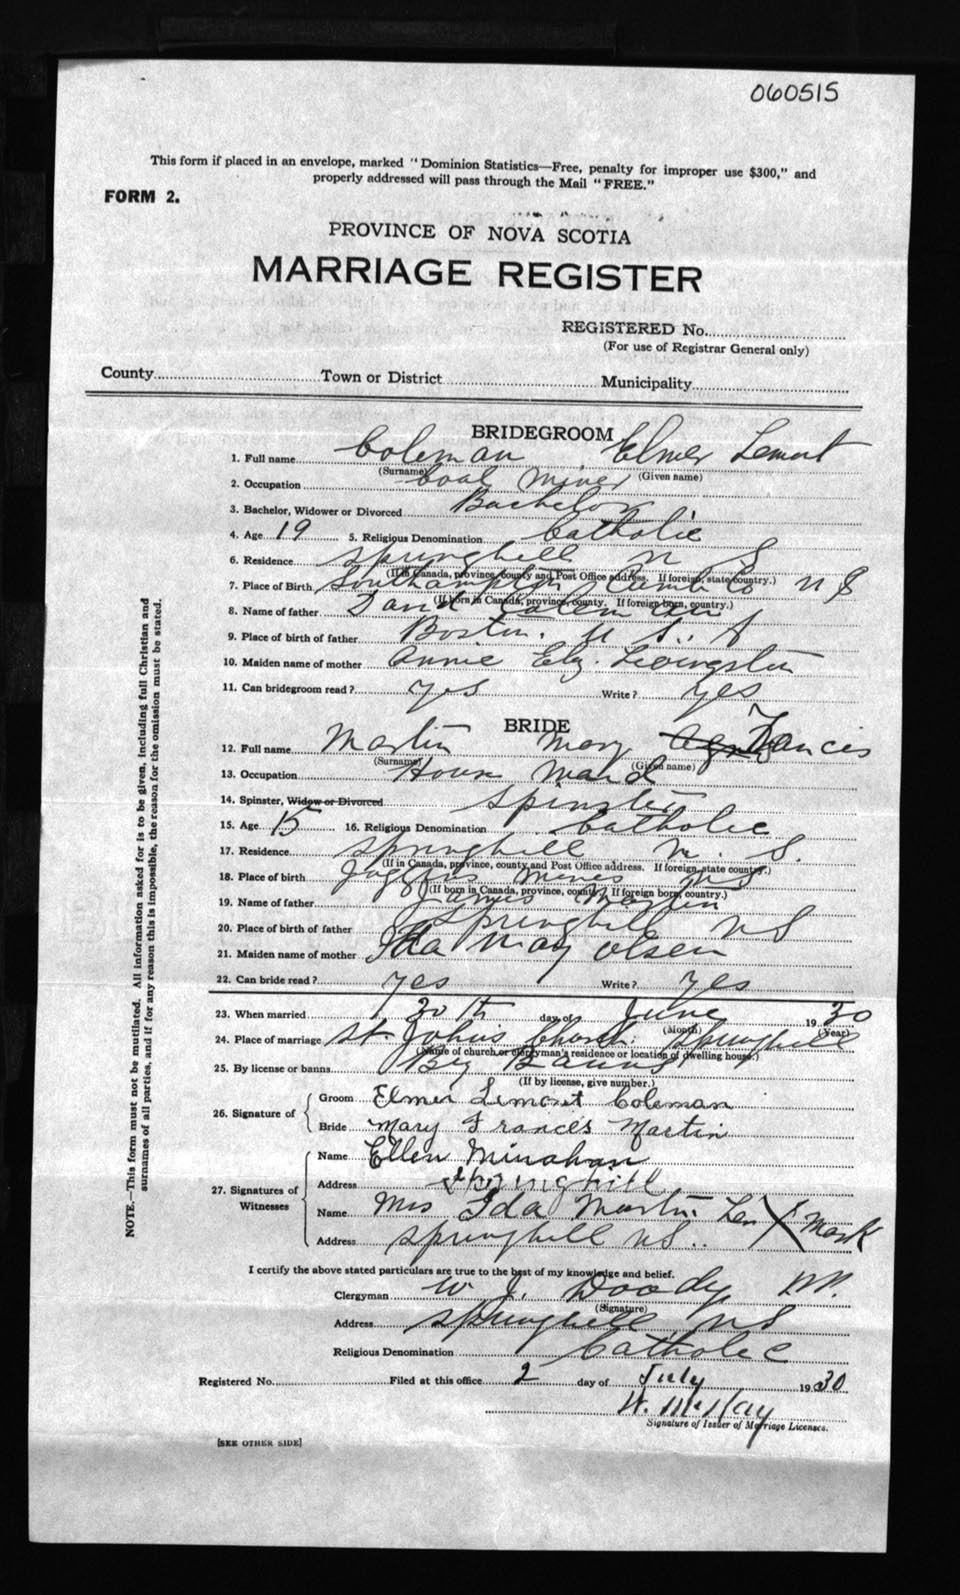 060515
This form if placed in an envelope, marked "Dominion Statistics—Free, penalty for improper use $300," and
properly addressed will pass through the Mail "FREE."
FORM 2.
PROVINCE OF NOVA SCOTIA
MARRIAGE REGISTER
REGISTERED No.
(For use of Registrar General only)
County Town or District Municipality
BRIDEGROOM
1. Full name Coleman Elmer Lemont
(Surname) (Given name)
2. Occupation Coal Miner
3. Bachelor, Widower or Divorced Bachelor
4. Age 19 5. Religious Denomination Catholic
6. Residence Springhill N S
(If in Canada, province, county and Post Office address. If foreign, state country.)
7. Place of Birth Southampton Cumb Co N S
(If born in Canada, province, county, If foreign born, country.)
8. Name of father David Coleman
9. Place of birth of father Boston. U S. A
10. Maiden name of mother Annie Elz. Livingston
11. Can bridegroom read? yes Write? yes
BRIDE
12. Full name Martin Mary Agnes Francis
(Surname) (Given name)
13. Occupation House Maid
14. Spinster, Widow or Divorced Spinster
15. Age 15 16. Religious Denomination Catholic
17. Residence Springhill N. S.
(If in Canada, province, county and Post Office address. If foreign, state country.)
18. Place of birth Joggins Mines N S
(If born in Canada, province, county, If foreign born, country.)
19. Name of father James Martin
20. Place of birth of father Springhill N S
21. Maiden name of mother Ida May Olsen
22. Can bride read? yes Write? yes
23. When married 30th day of June 1930
(Month) (Year)
24. Place of marriage St. John's Church. Springhill
(Name of church or clergyman's residence or location of dwelling house.)
25. By license or banns By Banns
(If by license, give number.)
26. Signature of Groom Elmer Lemont Coleman
Bride Mary Frances Martin
27. Signatures of Witnesses Name Ellen Minahan
Address Springhill
Name Mrs Ida Martin Her X Mark
Address Springhill N S..
I certify the above stated particulars are true to the best of my knowledge and belief.
Clergyman W J. Doody
(Signature)
Address Springhill N S
Religious Denomination Catholic
Registered No. Filed at this office 2 day of July 1930
W. McKay
Signature of Issuer of Marriage Licenses.
[SEE OTHER SIDE]
NOTE.—This form must not be mutilated. All information asked for is to be given, including full Christian and
surnames of all parties, and if for any reason this is impossible, the reason for the omission must be stated.